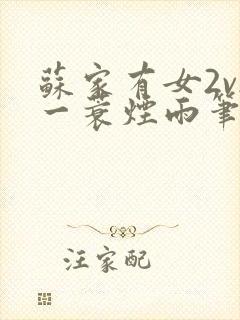 蘇家有女2v
一蓑煙雨筆
汪家配